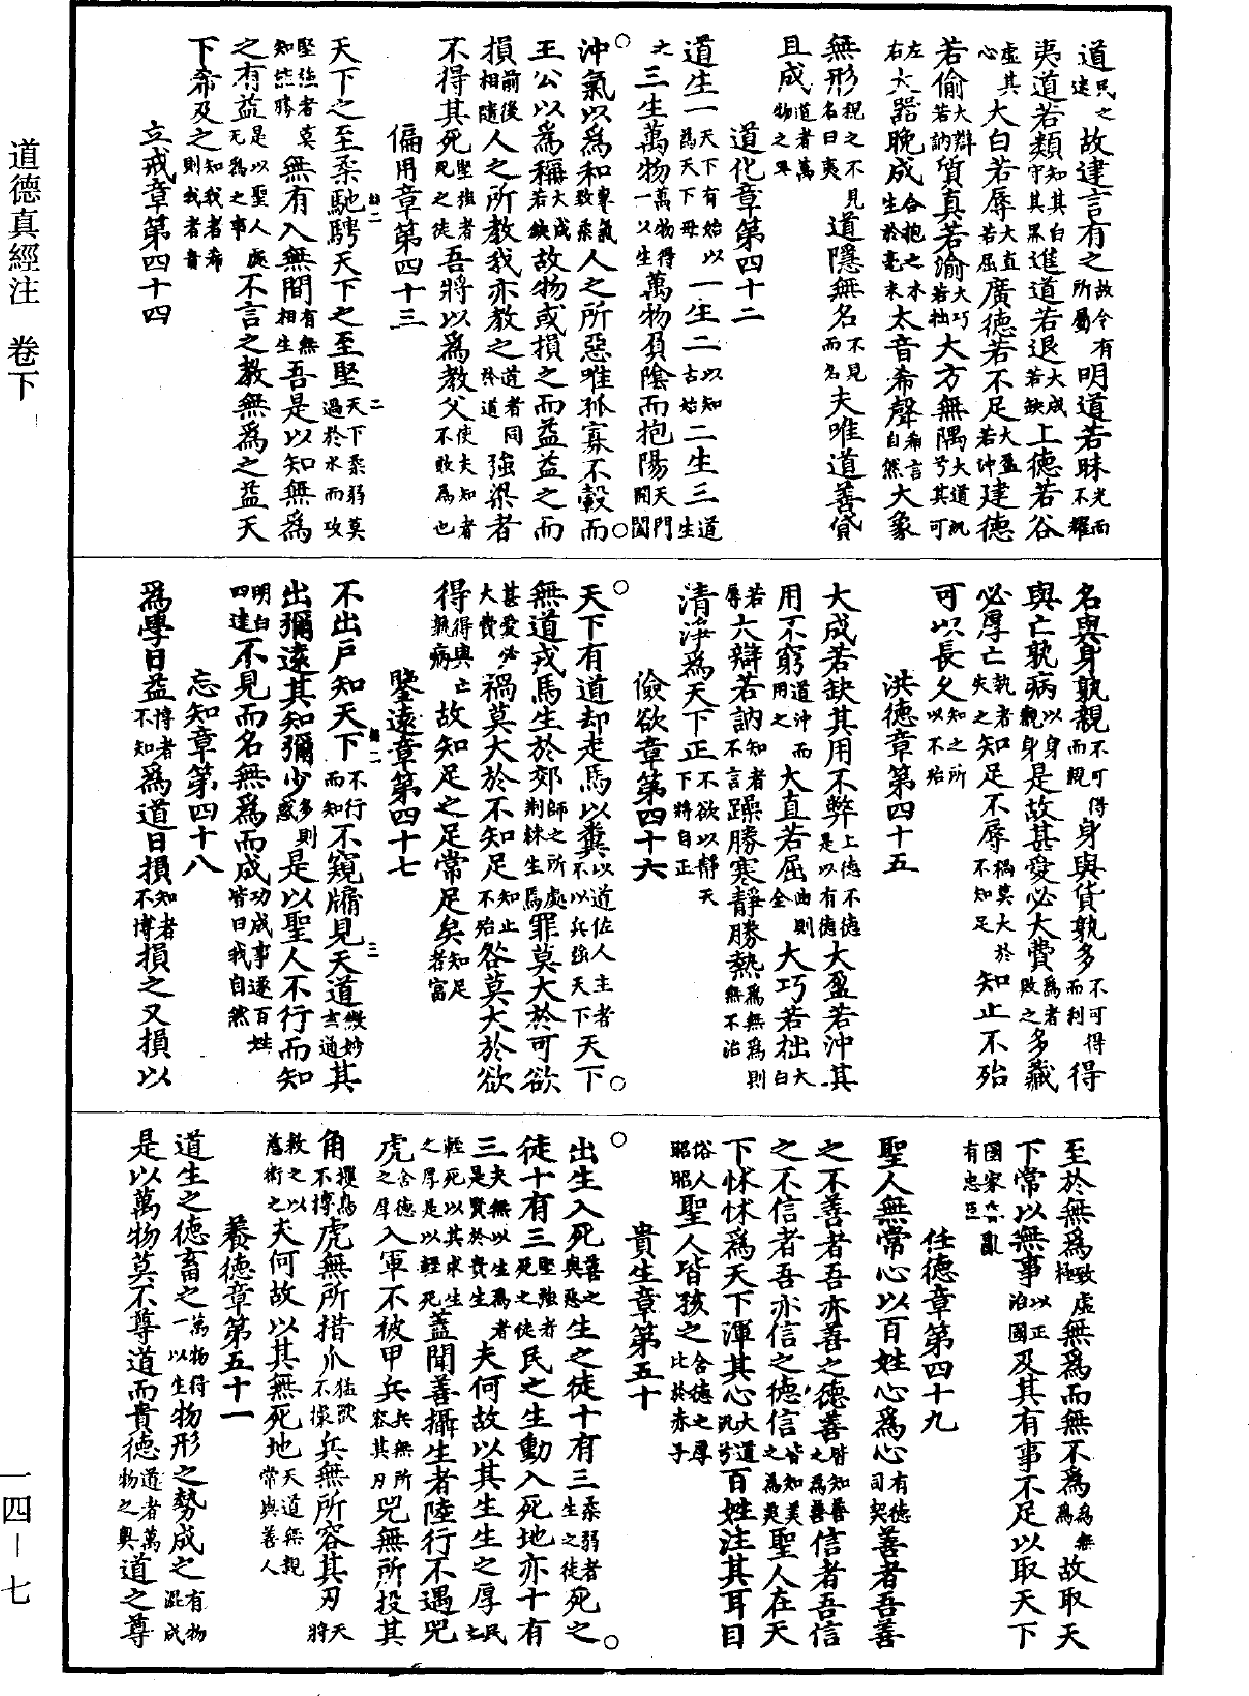 道德真經注　卷下
道民之迷故建言有之故今有所屬明道若昧光而不耀
夷道若類知其白守其黑進道若退大成若缺上德若谷
虛其心大白若辱大直若屈廣德若不足大盈若沖建德
若偷大辯若訥質真若渝大巧若拙大方無隅大道汎兮其可
左右大器晚成合抱之木生於毫末太音希聲希言自然大象
無形視之不見名曰夷道隱無名不見而名夫唯道善貸
且成道者萬物之奧
道化章第四十二
道生一天下有始以為天下母一生二以知古始二生三道生
之三生萬物萬物得一以生萬物負陰而抱陽天門開闔
沖氣以為和專氣致柔人之所惡唯孤寡不轂而
王公以為稱大成若缺故物或損之而益益之而
損前後相隨人之所教我亦教之道者同於道強梁者
不得其死堅強者死之徒吾將以為教父使夫知者不敢為也
偏用章第四十三
天下之至柔馳騁天下之至堅天下柔弱莫過於水而攻
堅強者莫知能勝無有入無間有無相生吾是以知無為
之有益是以聖人處无為之事不言之教無為之益天
下希及之知我者希則我者貴
立戒章第四十四
名與身孰親不可得而親身與貨孰多不可得而利得
與亡孰病以身觀身是故甚愛必大費為者敗之多藏
必厚亡執者失之知足不辱禍莫大於不知足知止不殆
可以長久知之所以不殆
洪德章第四十五
大成若缺其用不弊上德不德是以有德大盈若沖其
用不窮道沖而用之大直若屈曲則全大巧若拙大白
若辱大辯若訥知者不言躁勝寒靜勝熱為無為則無不治
清淨為天下正不欲以靜天下將自正
儉欲章第四十六
天下有道却走馬以糞以道佐人主者不以兵強天下天下
無道戎馬生於郊師之所處荊棘生焉罪莫大於可欲
甚愛必大費禍莫大於不知足知止不殆咎莫大於欲
得得與亡孰病故知足之足常足矣知足者富
鑒遠章第四十七
不出戶知天下不行而知不窺牖見天道微妙玄通其
出彌遠其知彌少多則惑是以聖人不行而知
明白四達不見而名無為而成功成事遂百姓皆曰我自然
忘知章第四十八
為學日益博者不知為道日損知者不博損之又損以
至於無為致虛極無為而無不為為無為故取天
下常以無事以正治國及其有事不足以取天下
國家昏亂有忠臣
任德章第四十九
聖人無常心以百姓心為心有德司契善者吾善
之不善者吾亦善之德善皆知善之為善信者吾信
之不信者吾亦信之德信皆知美之為美聖人在天
下怵怵為天下渾其心大道汎兮百姓注其耳目
俗人昭昭聖人皆孩之含德之厚比於赤子
貴生章第五十
出生入死善之與惡生之徒十有三柔弱者生之徒死之
徒十有三堅強者死之徒民之生動入死地亦十有
三夫無以生為者是賢於貴生夫何故以其生生之厚民之
輕死以其求生之厚是以輕死蓋聞善攝生者陸行不遇兕
虎含德之厚入軍不被甲兵兵無所容其刃兕無所投其
角攫鳥不搏虎無所措爪猛獸不據兵無所容其刃天將
救之以慈衛之夫何故以其無死地天道無親常與善人
養德章第五十一
道生之德畜之萬物得一以生物形之勢成之有物混成
是以萬物莫不尊道而貴德道者萬物之奧道之尊
一四－七